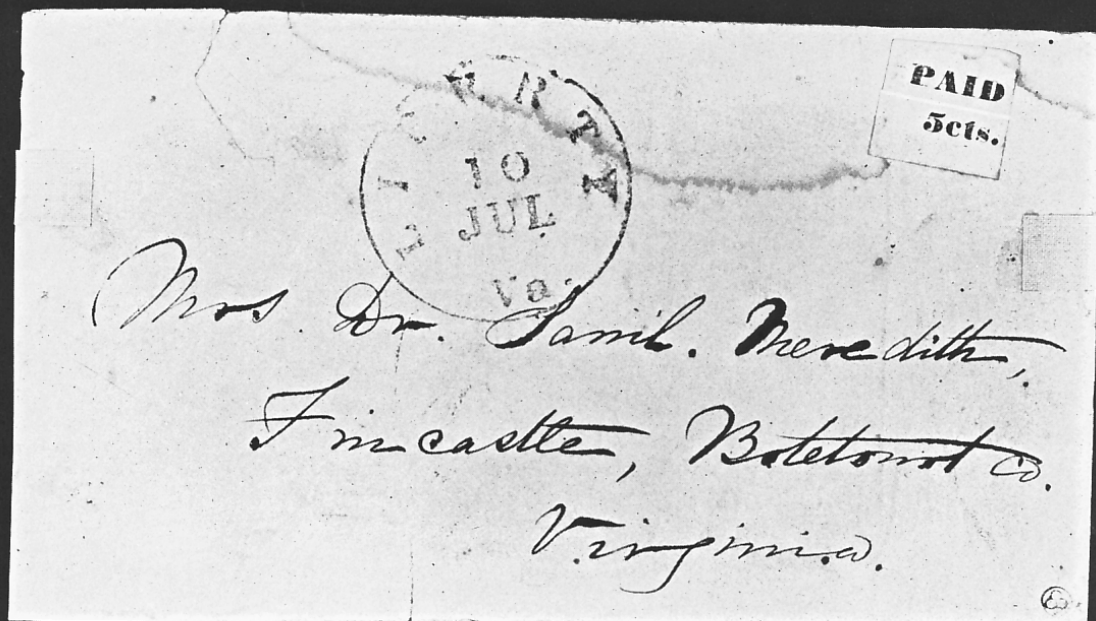 LIBERTY
10
JUL
Va.
PAID
5cts.
Mrs. Dr. Saml. Meredith,
Fincastle, Botetourt co.
Virginia.